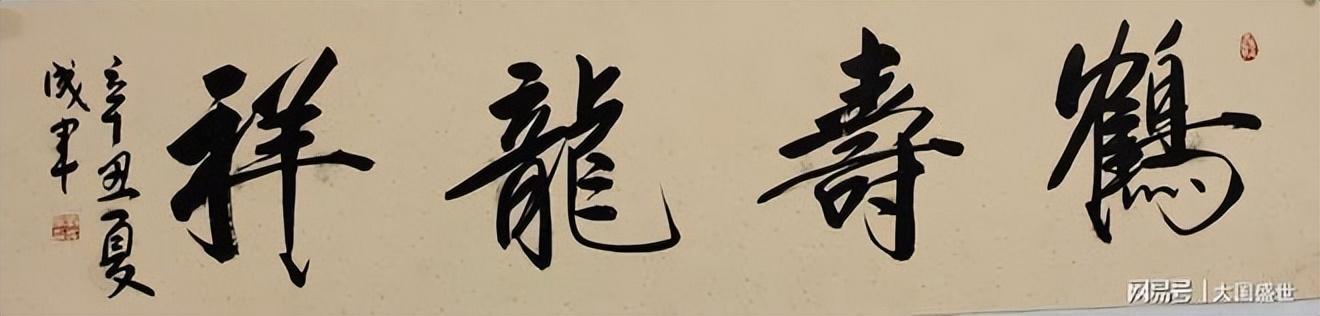 鶴壽龍祥
辛丑夏
成軍
网易号 | 大国盛世